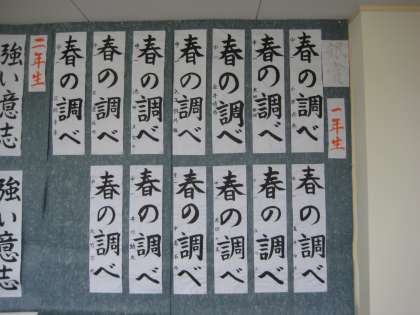 一年生
春の調べ
春の調べ
春の調べ
春の調べ
春の調べ
春の調べ
春の調べ
春の調べ
春の調べ
春の調べ
春の調べ
春の調べ
春の調べ
二年生
強い意志
強い意志